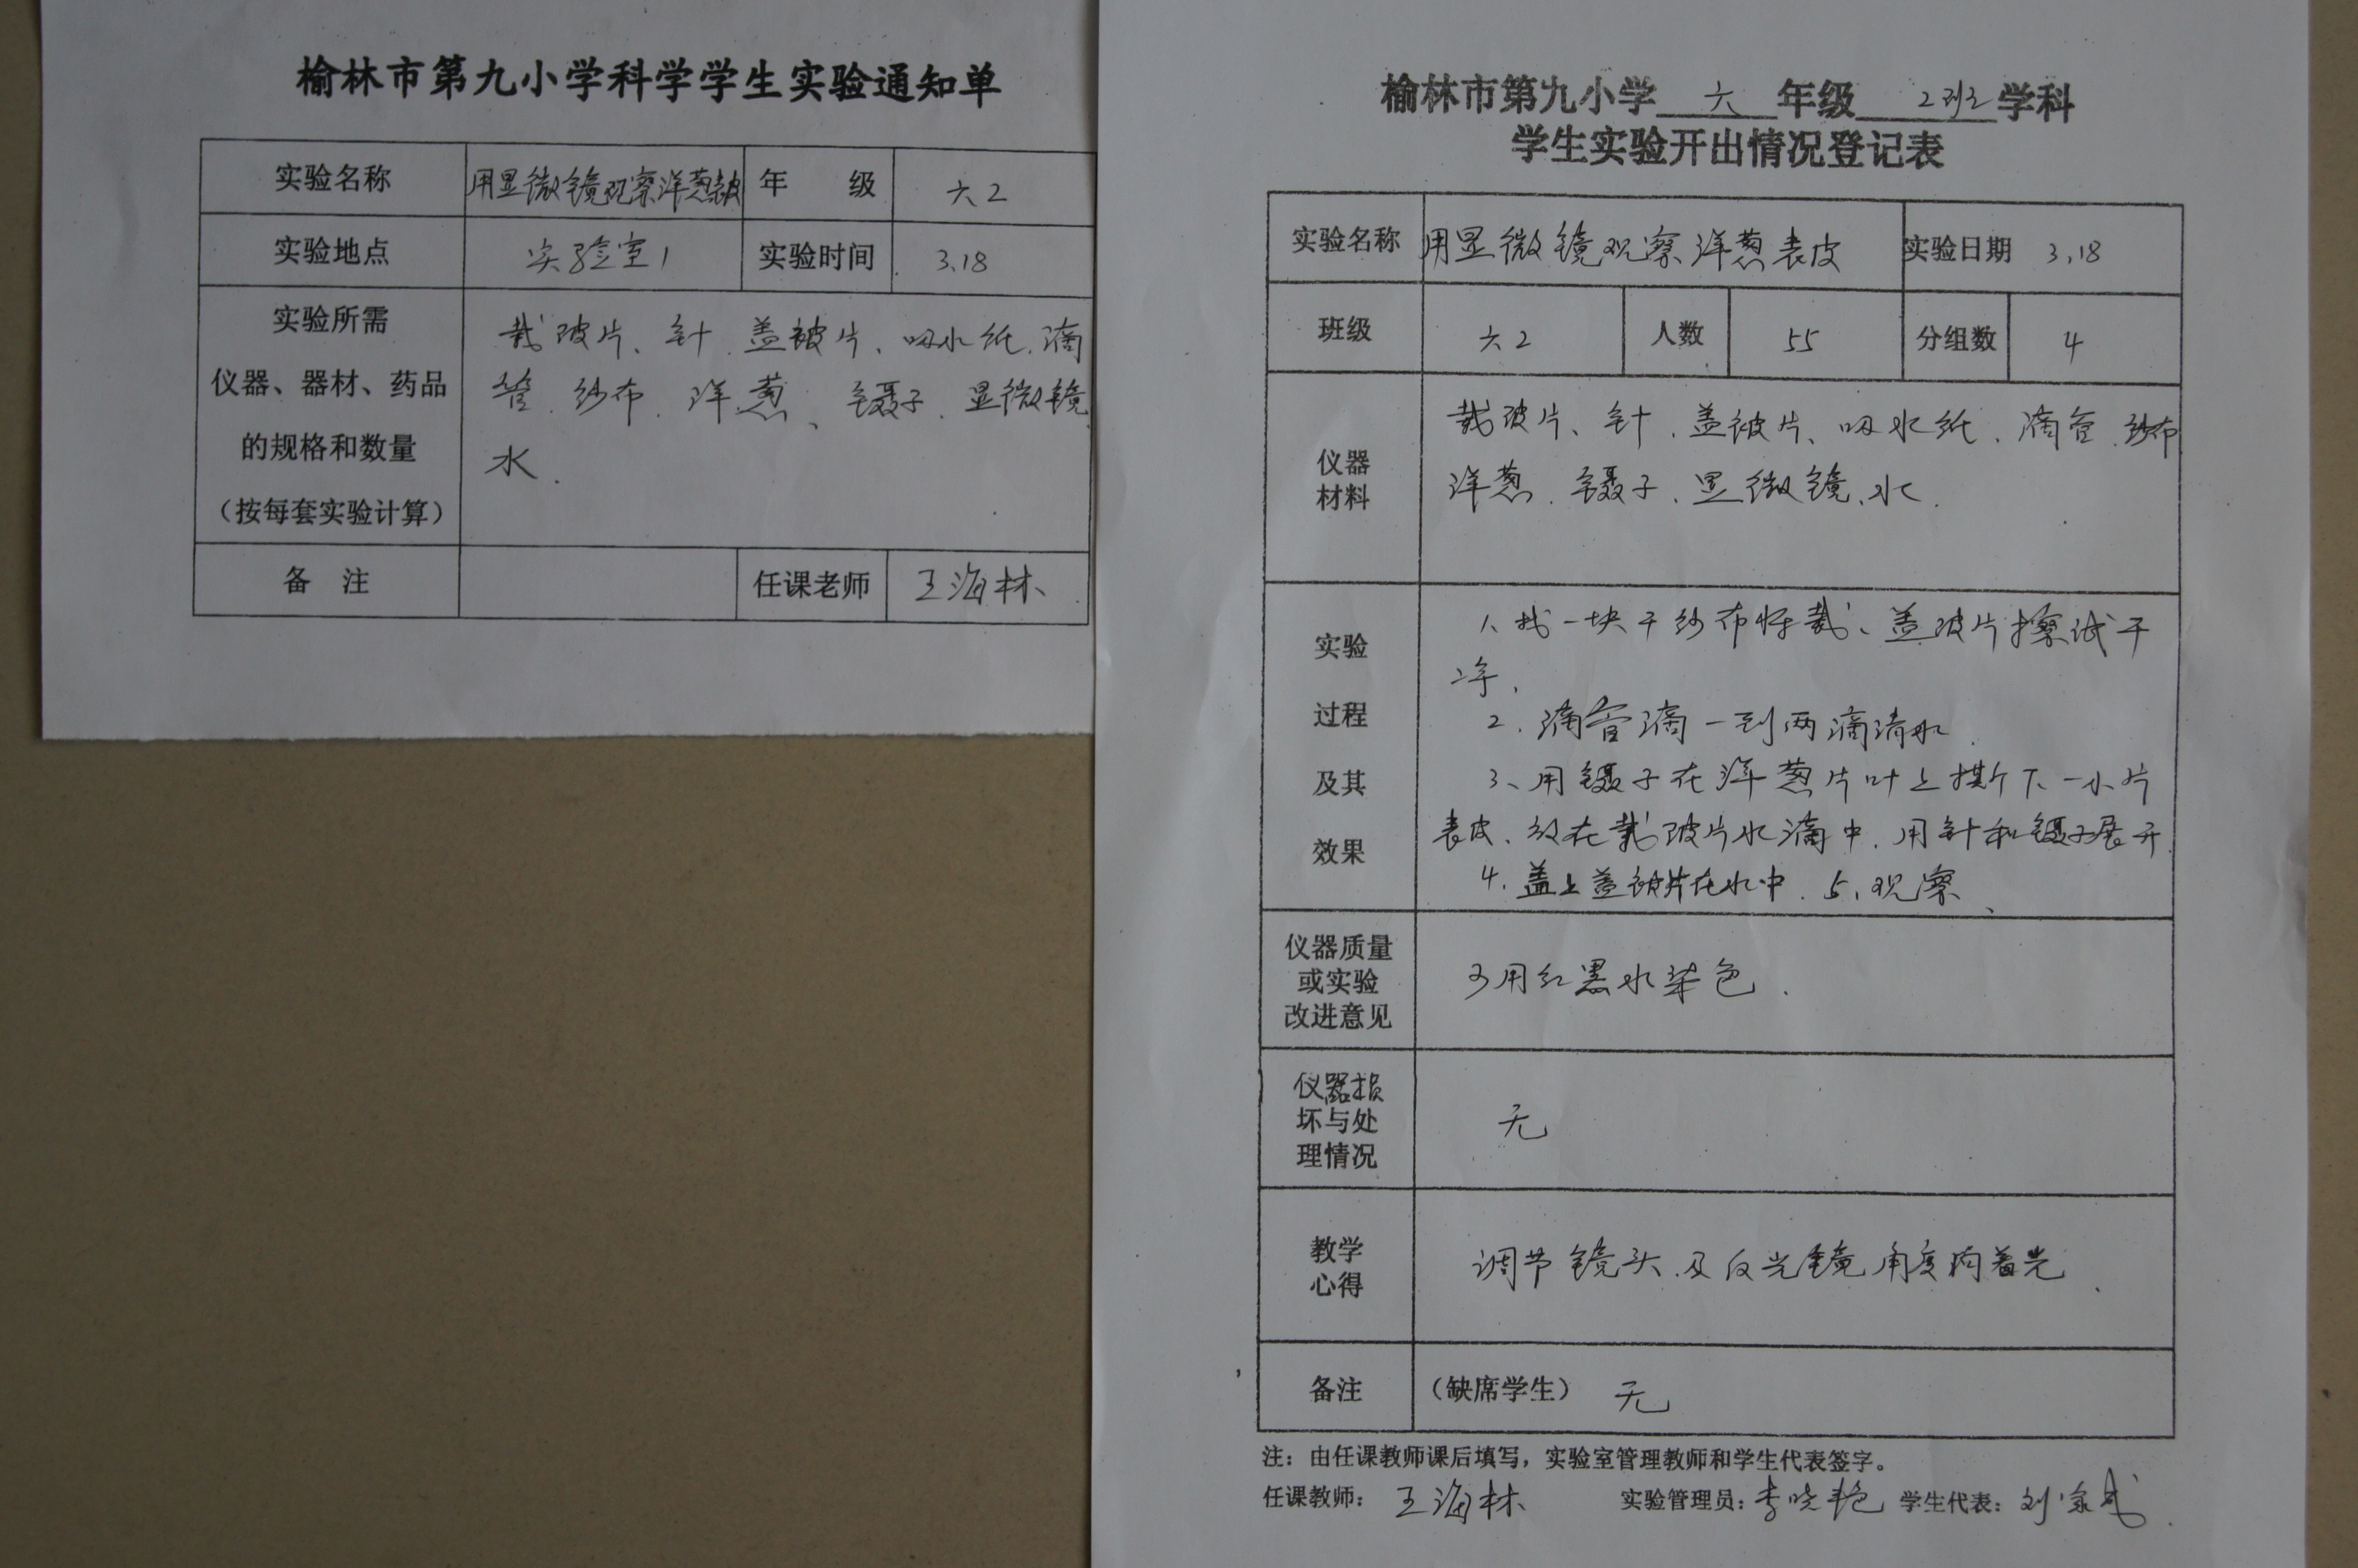 榆林市第九小学科学学生实验通知单
实验名称 用显微镜观察洋葱表皮 年 级 六2
实验地点 实验室1 实验时间 3.18
实验所需
仪器、器材、药品
的规格和数量
（按每套实验计算）
载玻片、针、盖玻片、吸水纸、滴
管、纱布、洋葱、镊子、显微镜
水.
备 注 任课老师 王海林
榆林市第九小学 六 年级 2班 学科
学生实验开出情况登记表
实验名称 用显微镜观察洋葱表皮 实验日期 3.18
班级 六2 人数 55 分组数 4
仪器
材料
载玻片、针、盖玻片、吸水纸、滴管、纱布
洋葱、镊子、显微镜、水.
实验
过程
及其
效果
1、找一块干纱布将载、盖玻片擦试干
净.
2.滴管滴一到两滴清水.
3、用镊子在洋葱片叶上撕下一小片
表皮、放在载玻片水滴中.用针和镊子展开.
4.盖上盖玻片在水中.5、观察、
仪器质量
或实验
改进意见
可用红墨水染色.
仪器损
坏与处
理情况
无
教学
心得
调节镜头及反光镜角度向着光.
备注 （缺席学生） 无
注：由任课教师课后填写，实验室管理教师和学生代表签字。
任课教师： 王海林 实验管理员：李晓艳 学生代表：刘